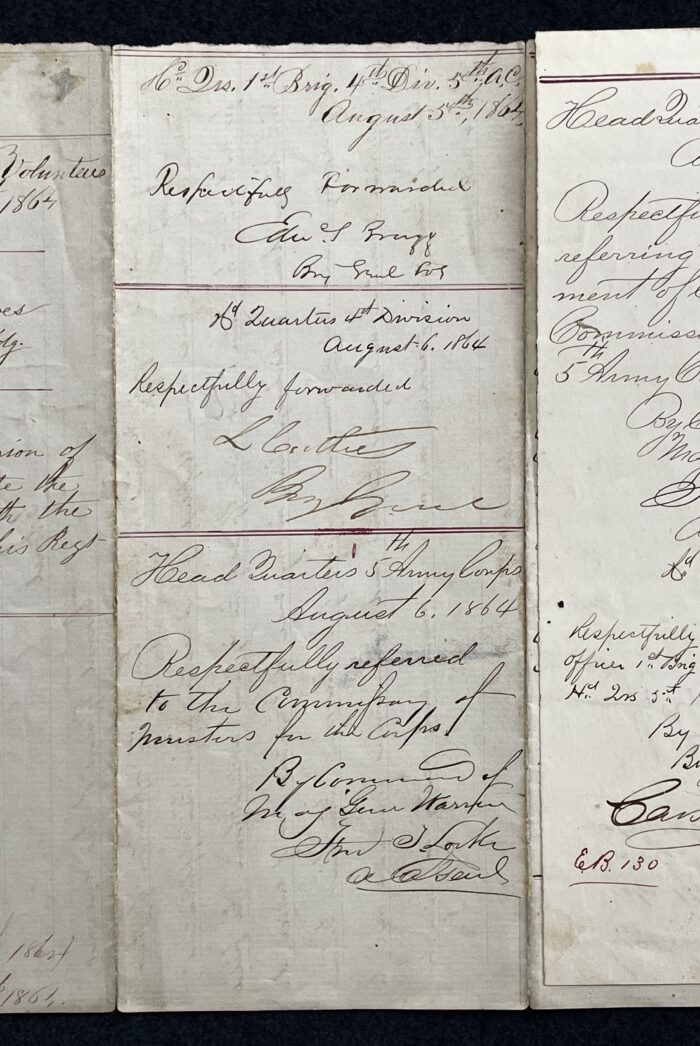 Volunteers
1864
ves
dg.
ion of
te the
th the
his Regt
1864
1864.
Hd Qrs. 1st Brig. 4th Div. 5th, A.C.
August 5th, 1864.
Respectfully Forwarded
Edw. S Bragg
Brig Genl
Hd Quarters 4th Division
August 6. 1864
Respectfully forwarded
L Cutler
Brig Genl
Head Quarters 5th Army Corps
August 6. 1864
Respectfully referred
to the Commissary of
musters for the Corps
By Command of
Maj Genl Warren
Fred T Locke
A A Genl
Head Qua
Respectfu
referring
ment of
Commiss
5th Army C
By C
Respectfully
officer 1st Brig
Hd Qrs 5th
By
E.B. 130